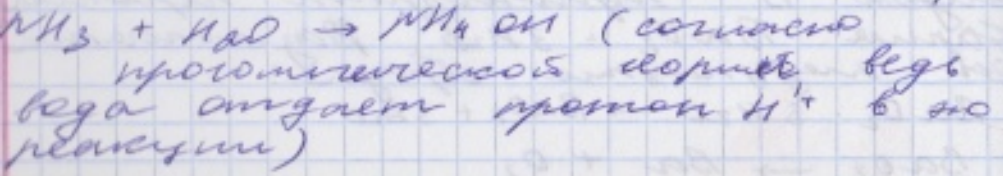 NH₃ + H₂O → NH₄OH (согласно
протолитической теории, ведь
вода отдает протон H⁺ в
реакции)